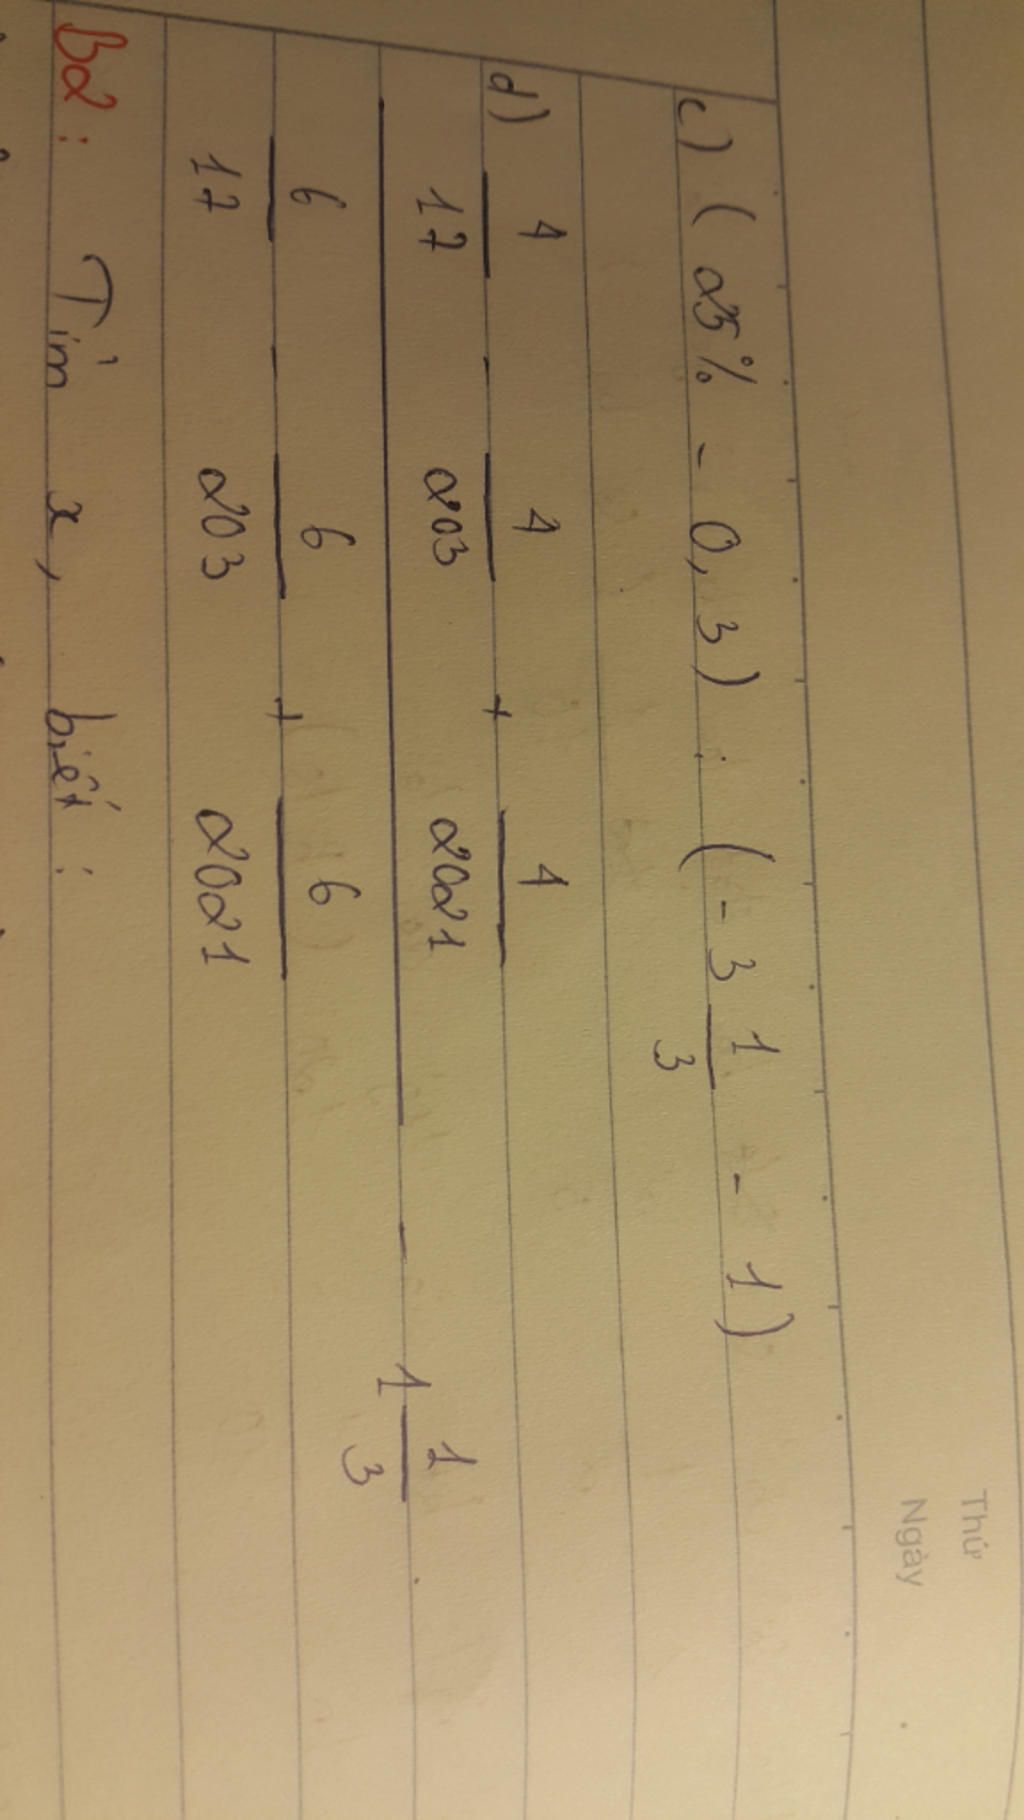 Thứ
Ngày
c) (25% - 0,3) : (-3 1/3 - 1)
d) 4/17 - 4/203 + 4/2021
6/17 - 6/203 + 6/2021 - 1 1/3
B2: Tìm x, biết :